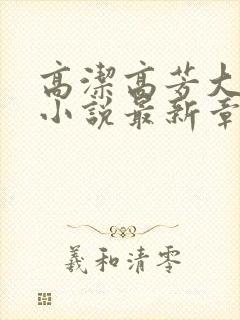 高潔高芳大
小說最新章
羲和清零